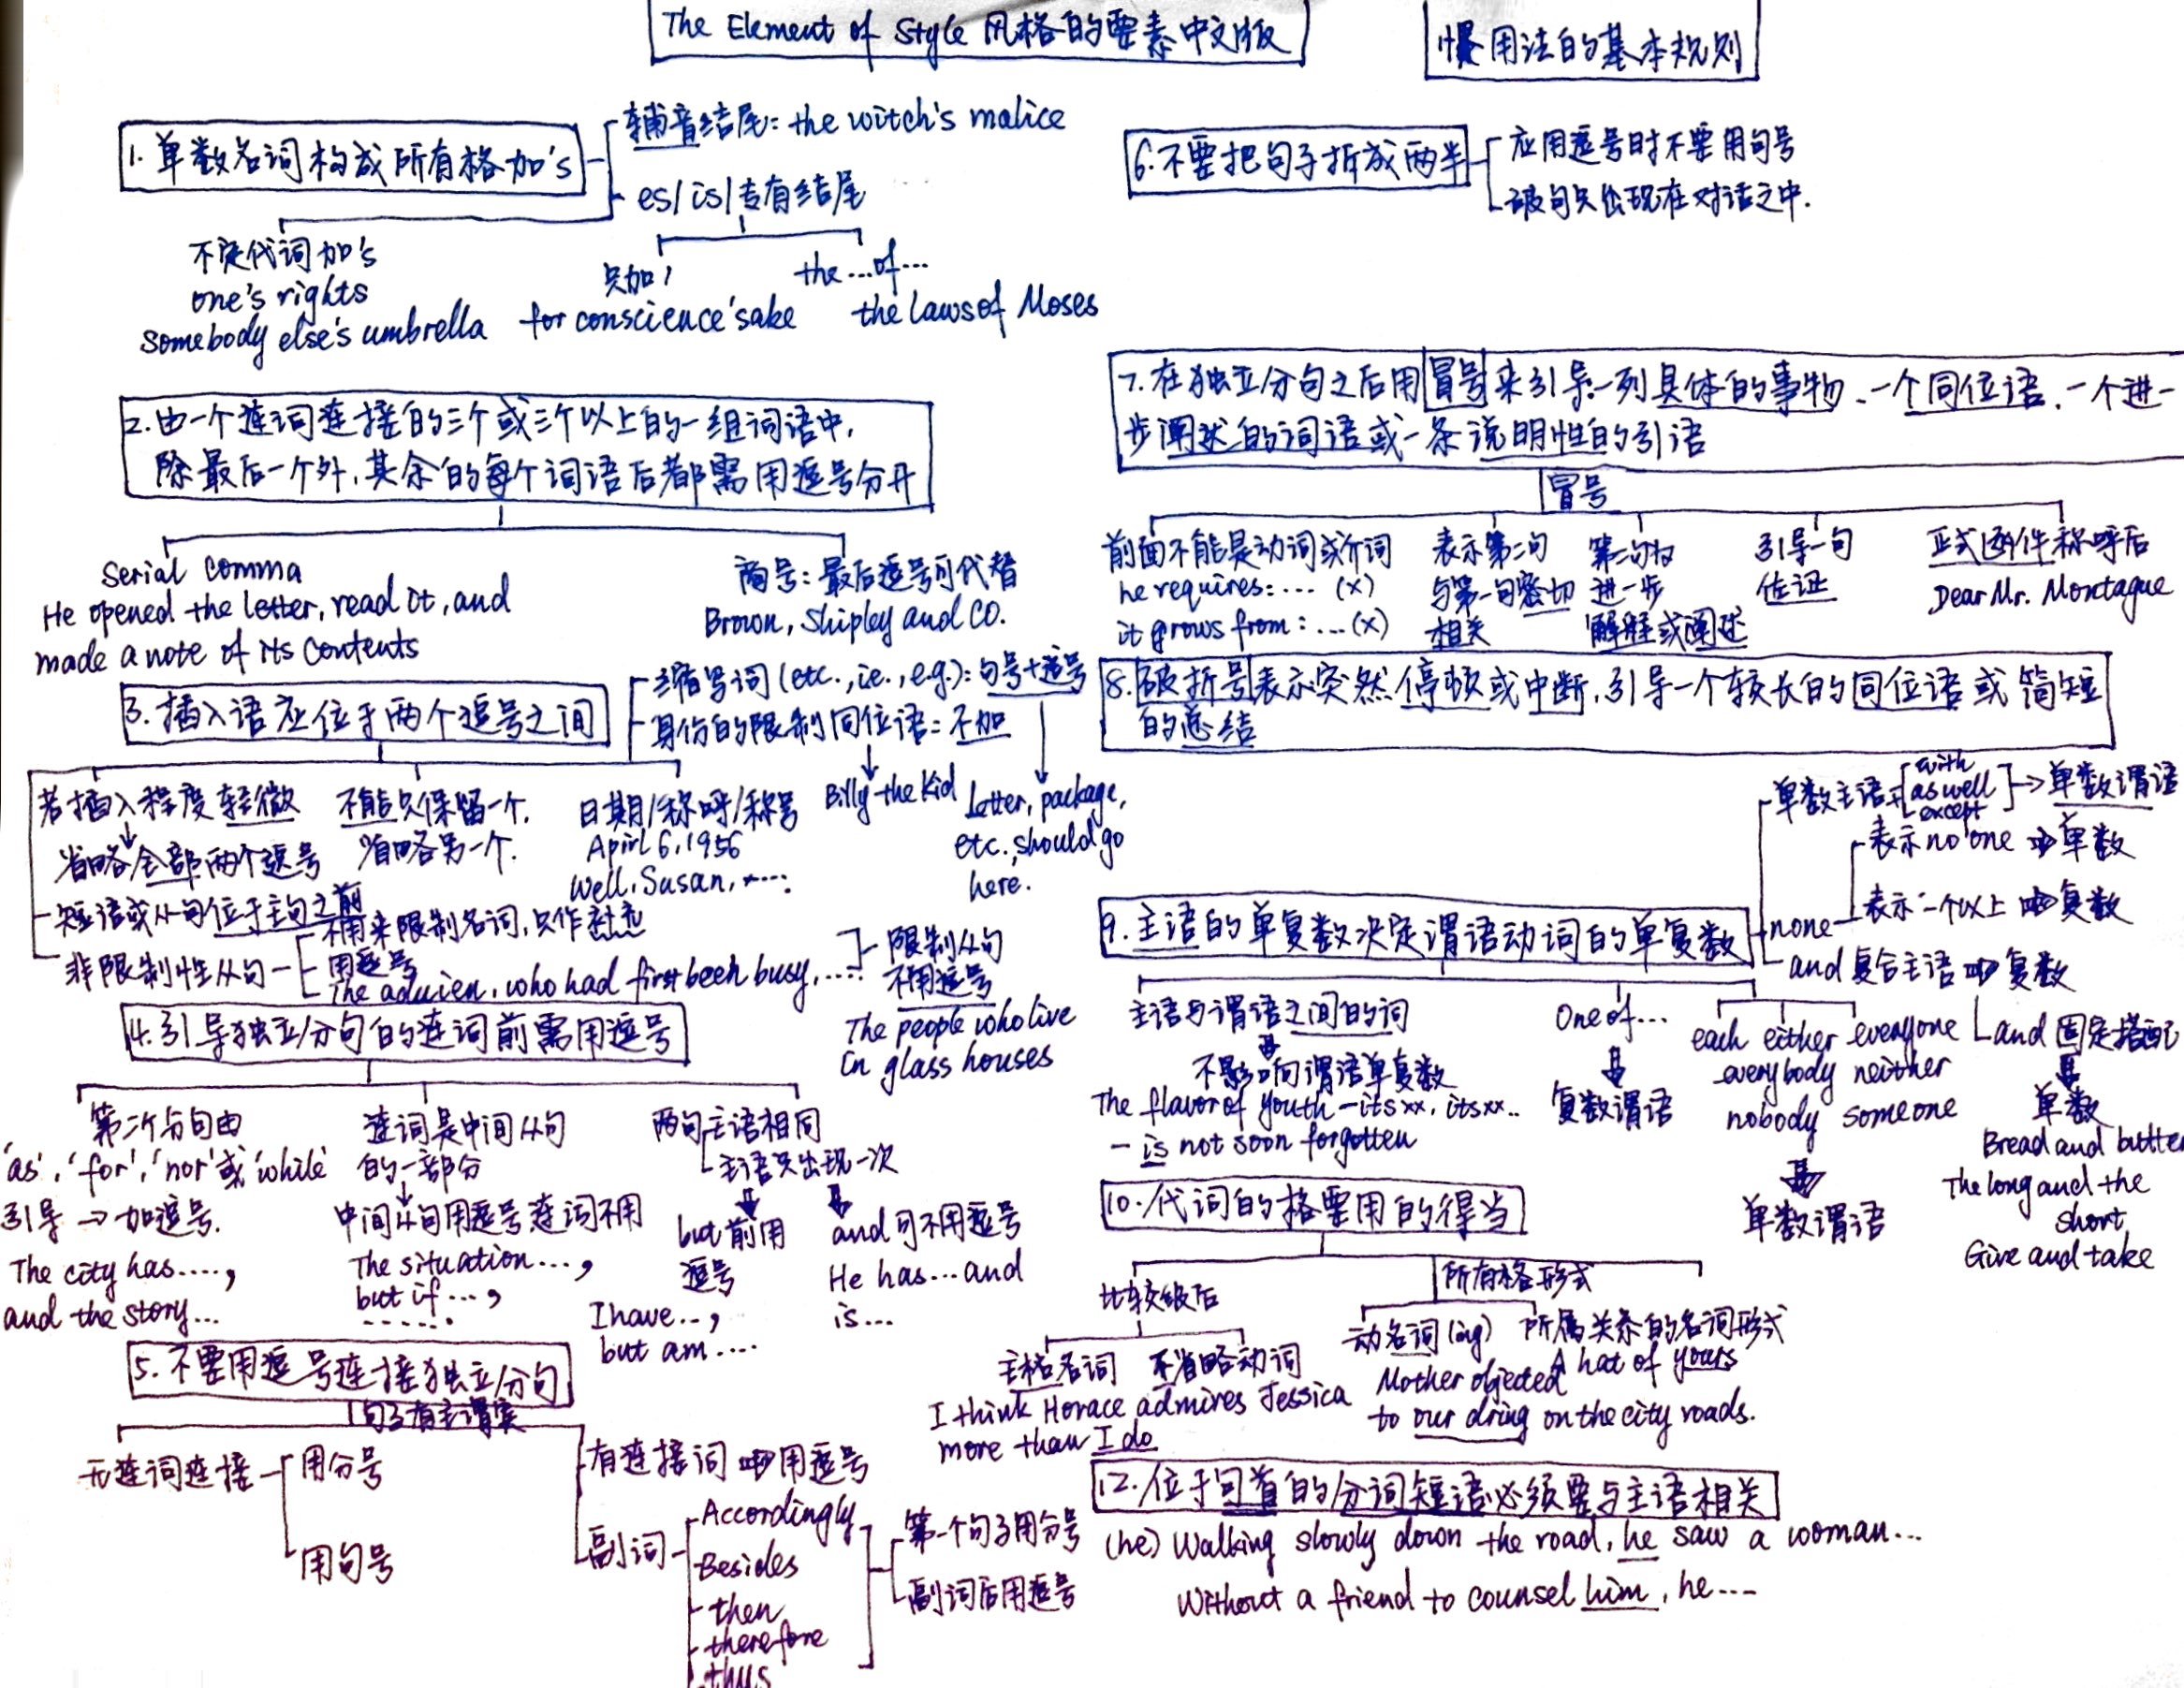 The Element of Style 风格的要素中文版
惯用法的基本规则
1. 单数名词构成所有格加's
辅音结尾: the witch's malice
es/is/专有结尾
只加'
for conscience'sake
the...of...
the laws of Moses
不定代词加's
one's rights
somebody else's umbrella
2. 由一个连词连接的三个或三个以上的一组词语中,
除最后一个外,其余的每个词语后都需用逗号分开
Serial comma
He opened the letter, read it, and
made a note of its contents
商号: 最后逗号可代替
Brown, Shipley and CO.
3. 插入语应位于两个逗号之间
缩写词 (etc., i.e., e.g.): 句号+逗号
身份的限制同位语: 不加
Billy the Kid
Letter, package,
etc., should go
here.
若插入程度轻微
省略全部两个逗号
不能只保留一个,
省略另一个.
日期/称呼/称号
April 6, 1956
Well, Susan, ....
短语或从句位于主句之前
非限制性从句
不用来限制名词,只作
用逗号
who had first been busy, ....
限制从句
不用逗号
The people who live
in glass houses
4. 引导独立分句的连词前需用逗号
第二个分句由
'as', 'for', 'nor' 或 'while'
引导 → 加逗号.
The city has....,
and the story...
连词是中间从句
的一部分
中间从句用逗号连词不用
The situation...,
but if...,
......
两句主语相同
主语只出现一次
but 前用
逗号
I have..,
but am....
and 可不用逗号
He has...and
is...
5. 不要用逗号连接独立分句
句子有主谓宾
无连词连接
用分号
用句号
有连接词 ⇒ 用逗号
副词
Accordingly
Besides
then
therefore
thus
第一个句子用分号
副词后用逗号
6. 不要把句子拆成两半
应用逗号时不要用句号
破句只出现在对话之中.
7. 在独立分句之后用冒号来引导一列具体的事物、一个同位语、一个进一
步阐述的词语或一条说明性的引语
冒号
前面不能是动词或介词
he requires: ... (x)
it grows from: ... (x)
表示第二句
与第一句密切
相关
第二句
进一步
解释或阐述
引导一句
佐证
正式函件称呼后
Dear Mr. Montague
8. 破折号表示突然停顿或中断,引导一个较长的同位语或简短
的总结
9. 主语的单复数决定谓语动词的单复数
单数主语+
with
as well
except
→ 单数谓语
none
表示 no one ⇒ 单数
表示一个以上 ⇒ 复数
and 复合主语 ⇒ 复数
and 固定搭配
单数
Bread and butter
The long and the
short
Give and take
主语与谓语之间的词
不影响谓语单复数
The flavor of youth — its xx, its xx..
— is not soon forgotten
One of...
复数谓语
each either everyone
everybody neither
nobody someone
单数谓语
10. 代词的格要用的得当
比较级后
主格名词 不省略动词
I think Horace admires Jessica
more than I do
所有格形式
动名词(ing)
Mother objected
to our dring on the city roads.
所属关系的名词形式
A hat of yours
12. 位于句首的分词短语必须要与主语相关
(he) Walking slowly down the road, he saw a woman...
Without a friend to counsel him, he....